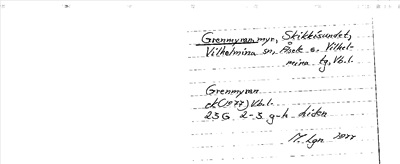 Grenmyran, myr, Skikkisundet,
Vilhelmina sn, Åsele o. Vilhel-
mina tg, Vb.l.
Grenmyran
ek(1977) Vb.l.
23G 2-3 g-h
M. Lgn 1977